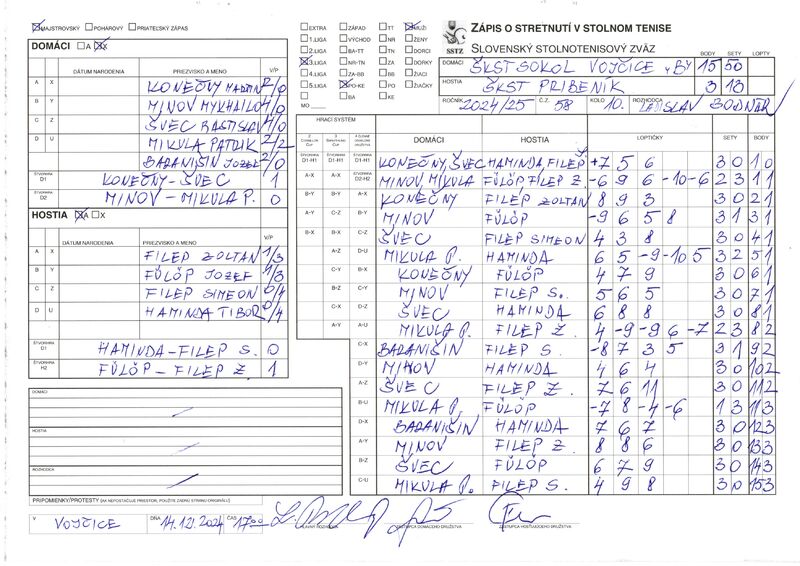 MAJSTROVSKÝ POHAROVÝ PRIATEĽSKÝ ZÁPAS
DOMÁCI A X
DÁTUM NARODENIA PRIEZVISKO A MENO V/P
A X KONEČNÝ MARTIN 2/0
B Y MINOV MYKHAILO 4/0
C Z ŠVEC RASTISLAV 4/0
D U MIKULA PATRIK 2/2
BADANIŠIN JOZEF 2/0
ŠTVORHRA D1 KONEČNÝ - ŠVEC 1
ŠTVORHRA D2 MINOV - MIKULA P. 0
HOSTIA A X
DÁTUM NARODENIA PRIEZVISKO A MENO V/P
A X FILEP ZOLTAN 1/3
B Y FÜLÖP JOZEF 1/3
C Z FILEP SIMEON 0/4
D U HAMINDA TIBOR 0/4
ŠTVORHRA D1 HAMINDA - FILEP S. 0
ŠTVORHRA H2 FÜLÖP - FILEP Z. 1
DOMÁCI
HOSTIA
ROZHODCA
PRIPOMIENKY/PROTESTY (AK NEPOSTAČUJE PRIESTOR, POUŽITE ZADNÚ STRANU ORIGINÁLU)
V VOJČICE DŇA 14.12.2024 ČAS 17:00
HLAVNÝ ROZHODCA ZÁSTUPCA DOMÁCEHO DRUŽSTVA ZÁSTUPCA HOSŤUJÚCEHO DRUŽSTVA
EXTRA ZÁPAD TT MUŽI
1.LIGA VÝCHOD NR ŽENY
2.LIGA BA-TT TN DORCI
3.LIGA NR-TN ZA DORKY
4.LIGA ZA-BB BB ŽIACI
5.LIGA PO-KE PO
BA KE
MO
SSTZ
ZÁPIS O STRETNUTÍ V STOLNOM TENISE
SLOVENSKÝ STOLNOTENISOVÝ ZVÄZ
BODY SETY LOPTY
DOMÁCI ŠKST SOKOL VOJČICE "B" 15 50
HOSTIA ŠKST PRIBENÍK 3 18
ROČNÍK 2024/25 Č.Z. 58 KOLO 10. ROZHODCA LADISLAV BODNÁR
HRACÍ SYSTÉM
DOMÁCI HOSTIA LOPTIČKY SETY BODY
KONEČNÝ, ŠVEC HAMINDA, FILEP +7 5 6 3 0 1 0
MINOV MIKULA FÜLÖP, FILEP Z. -6 9 6 -10 -6 2 3 1 1
KONEČNÝ FILEP ZOLTAN 8 9 3 3 0 2 1
MINOV FÜLÖP -9 6 5 8 3 1 3 1
ŠVEC FILEP SIMEON 4 3 8 3 0 4 1
MIKULA P. HAMINDA 6 5 -9 -10 5 3 2 5 1
KONEČNÝ FÜLÖP 4 7 9 3 0 6 1
MINOV FILEP S. 5 6 5 3 0 7 1
ŠVEC HAMINDA 6 8 8 3 0 8 1
MIKULA P. FILEP Z. 4 -9 -9 6 -7 2 3 8 2
BADANIŠIN FILEP S. -8 7 3 5 3 1 9 2
MINOV HAMINDA 4 6 4 3 0 10 2
ŠVEC FILEP Z. 7 6 11 3 0 11 2
MIKULA P. FÜLÖP -7 8 -4 -6 1 3 11 3
BADANIŠIN HAMINDA 7 6 7 3 0 12 3
MINOV FILEP Z. 8 8 6 3 0 13 3
ŠVEC FÜLÖP 6 7 9 3 0 14 3
MIKULA P. FILEP S. 4 9 8 3 0 15 3